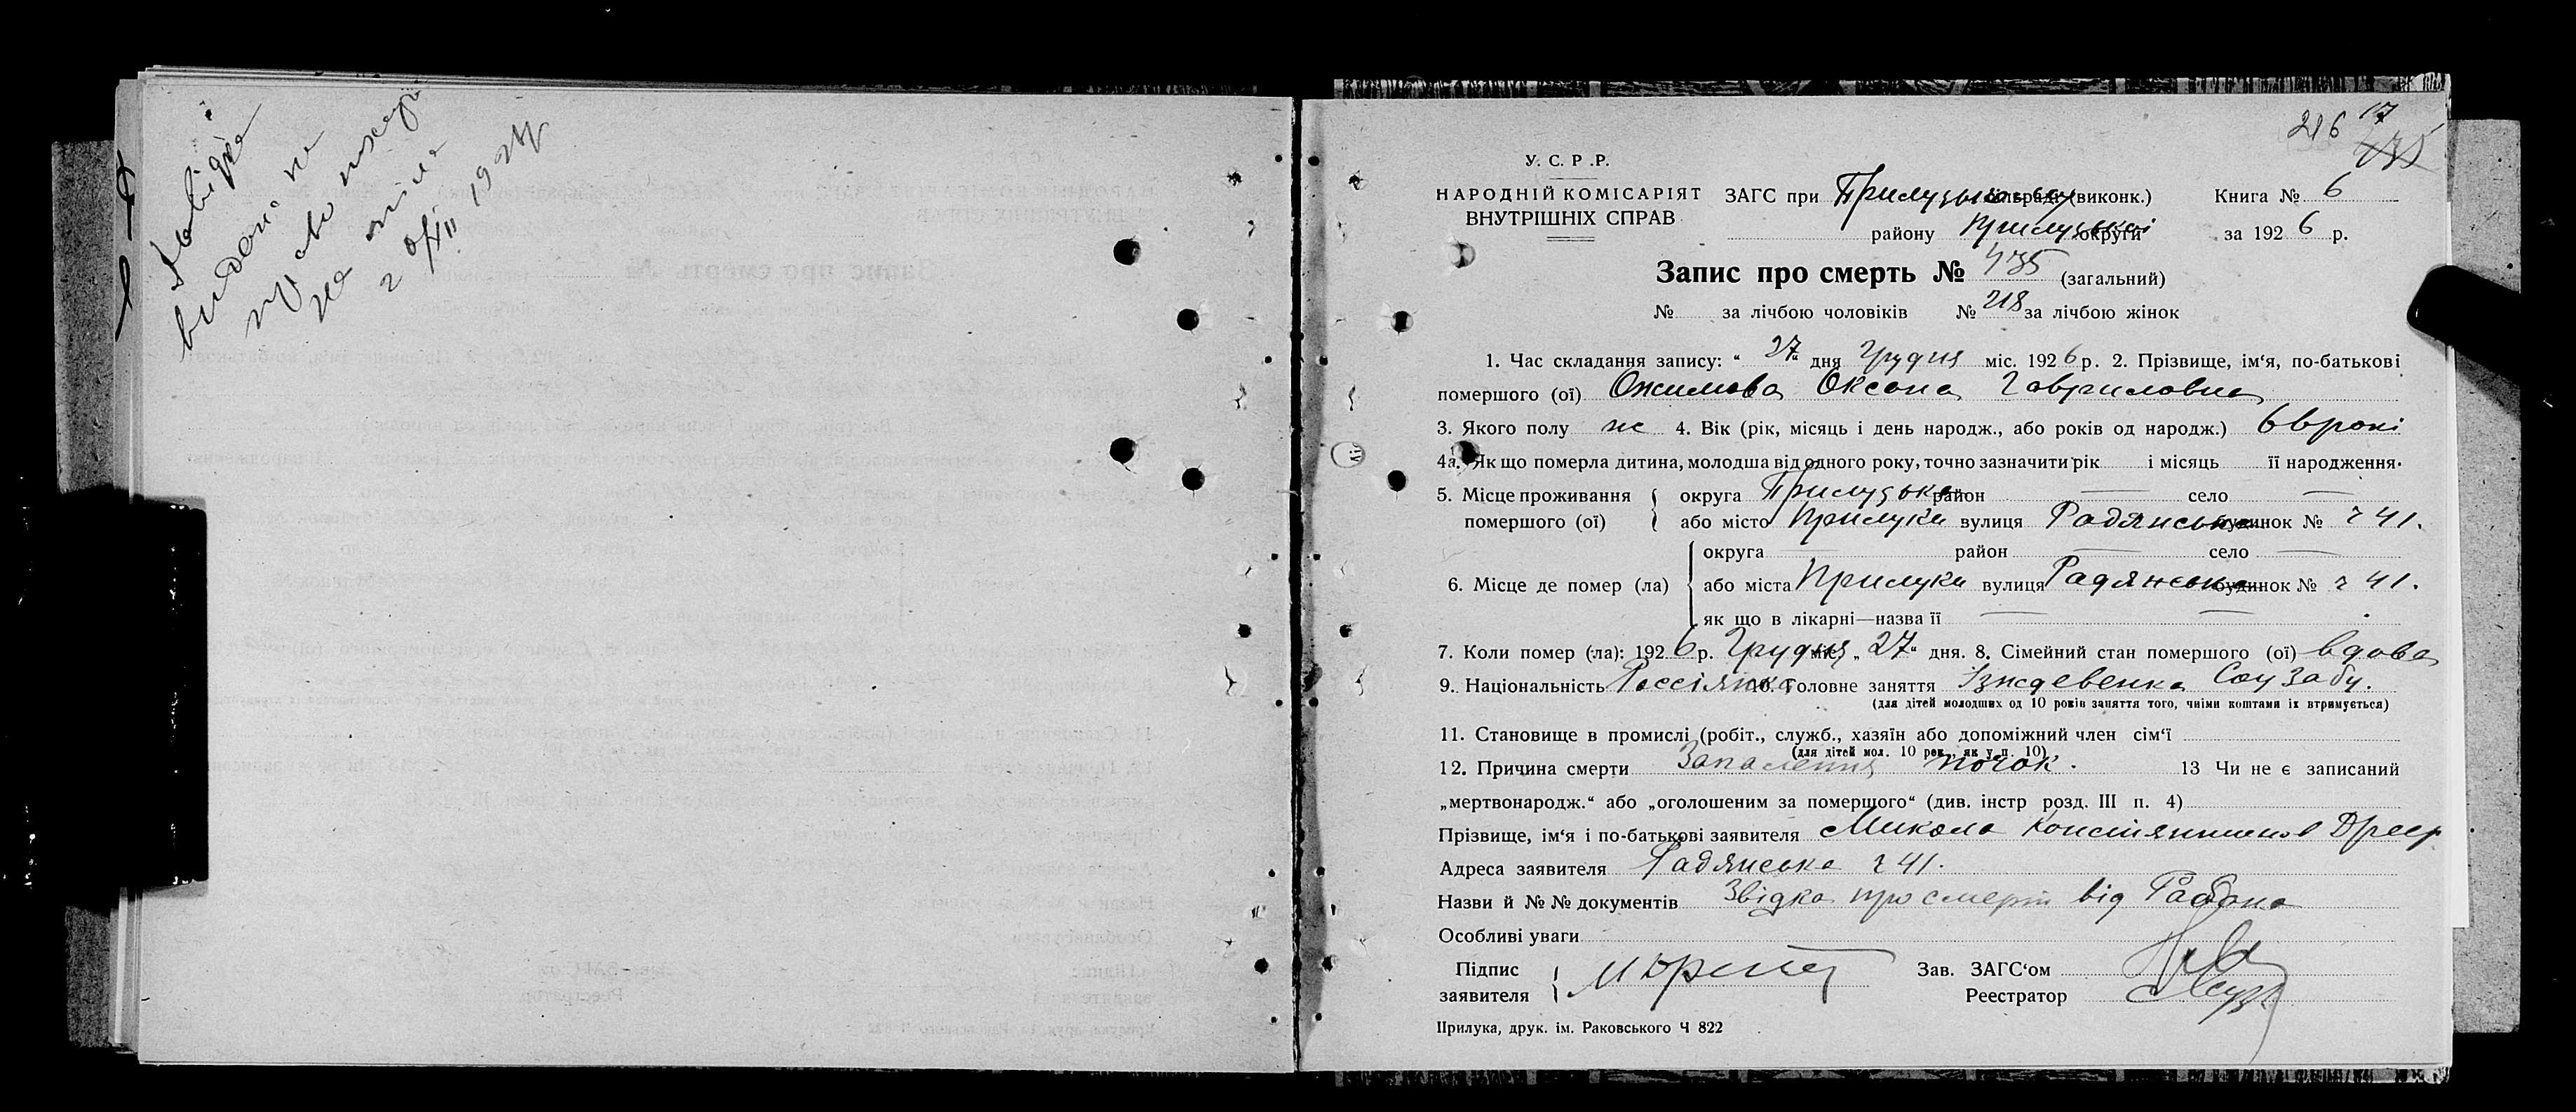 видано на
право
на
216 17
435
У. С. Р. Р.
НАРОДНІЙ КОМІСАРІЯТ ВНУТРІШНІХ СПРАВ
ЗАГС при Прилуцькому (виконк.) Книга № 6
району Прилуцької округи за 1926 р.
Запис про смерть № 435 (загальний)
№ за лічбою чоловіків № 218 за лічбою жінок
1. Час складання запису: “ 27 “ дня Грудня міс. 1926 р. 2. Прізвище, ім‘я, по-батькові
помершого (ої) Ожимова Оксана Гавриловна
3. Якого полу ж 4. Вік (рік, місяць і день народж., або років од народж.) 66 років
4а. Як що померла дитина, молодша від одного року, точно зазначити рік і місяць її народження.
5. Місце проживання округа Прилуцька район — село —
помершого (ої) або місто Прилуки вулиця Радянська будинок № ч 41.
округа — район — село —
6. Місце де помер (ла) або міста Прилуки вулиця Радянська будинок № ч 41.
як що в лікарні—назва її — —
7. Коли помер (ла): 1926 р. Грудня міс. „ 27 “ дня. 8. Сімейний стан помершого (ої) вдова
9. Національність Россіянка 10. Головне заняття Ізждевенка Соц Забу.
(для дітей молодших од 10 років заняття того, чиїми коштами їх втримується)
11. Становище в промислі (робіт., служб., хазяїн або допоміжний член сім‘ї
(для дітей мол. 10 рок., як у п. 10)
12. Причина смерти Запалення почок. 13 Чи не є записаний
„мертвонародж.“ або „оголошеним за помершого“ (див. інстр розд. III п. 4)
Прізвище, ім‘я і по-батькові заявителя Микола Констянтинов
Адреса заявителя Радянська ч 41.
Назви й №№ документів Звідка про смерть від
Особливі уваги
Підпис заявителя
Зав. ЗАГС‘ом
Реестратор
Прилука, друк. ім. Раковського Ч 822